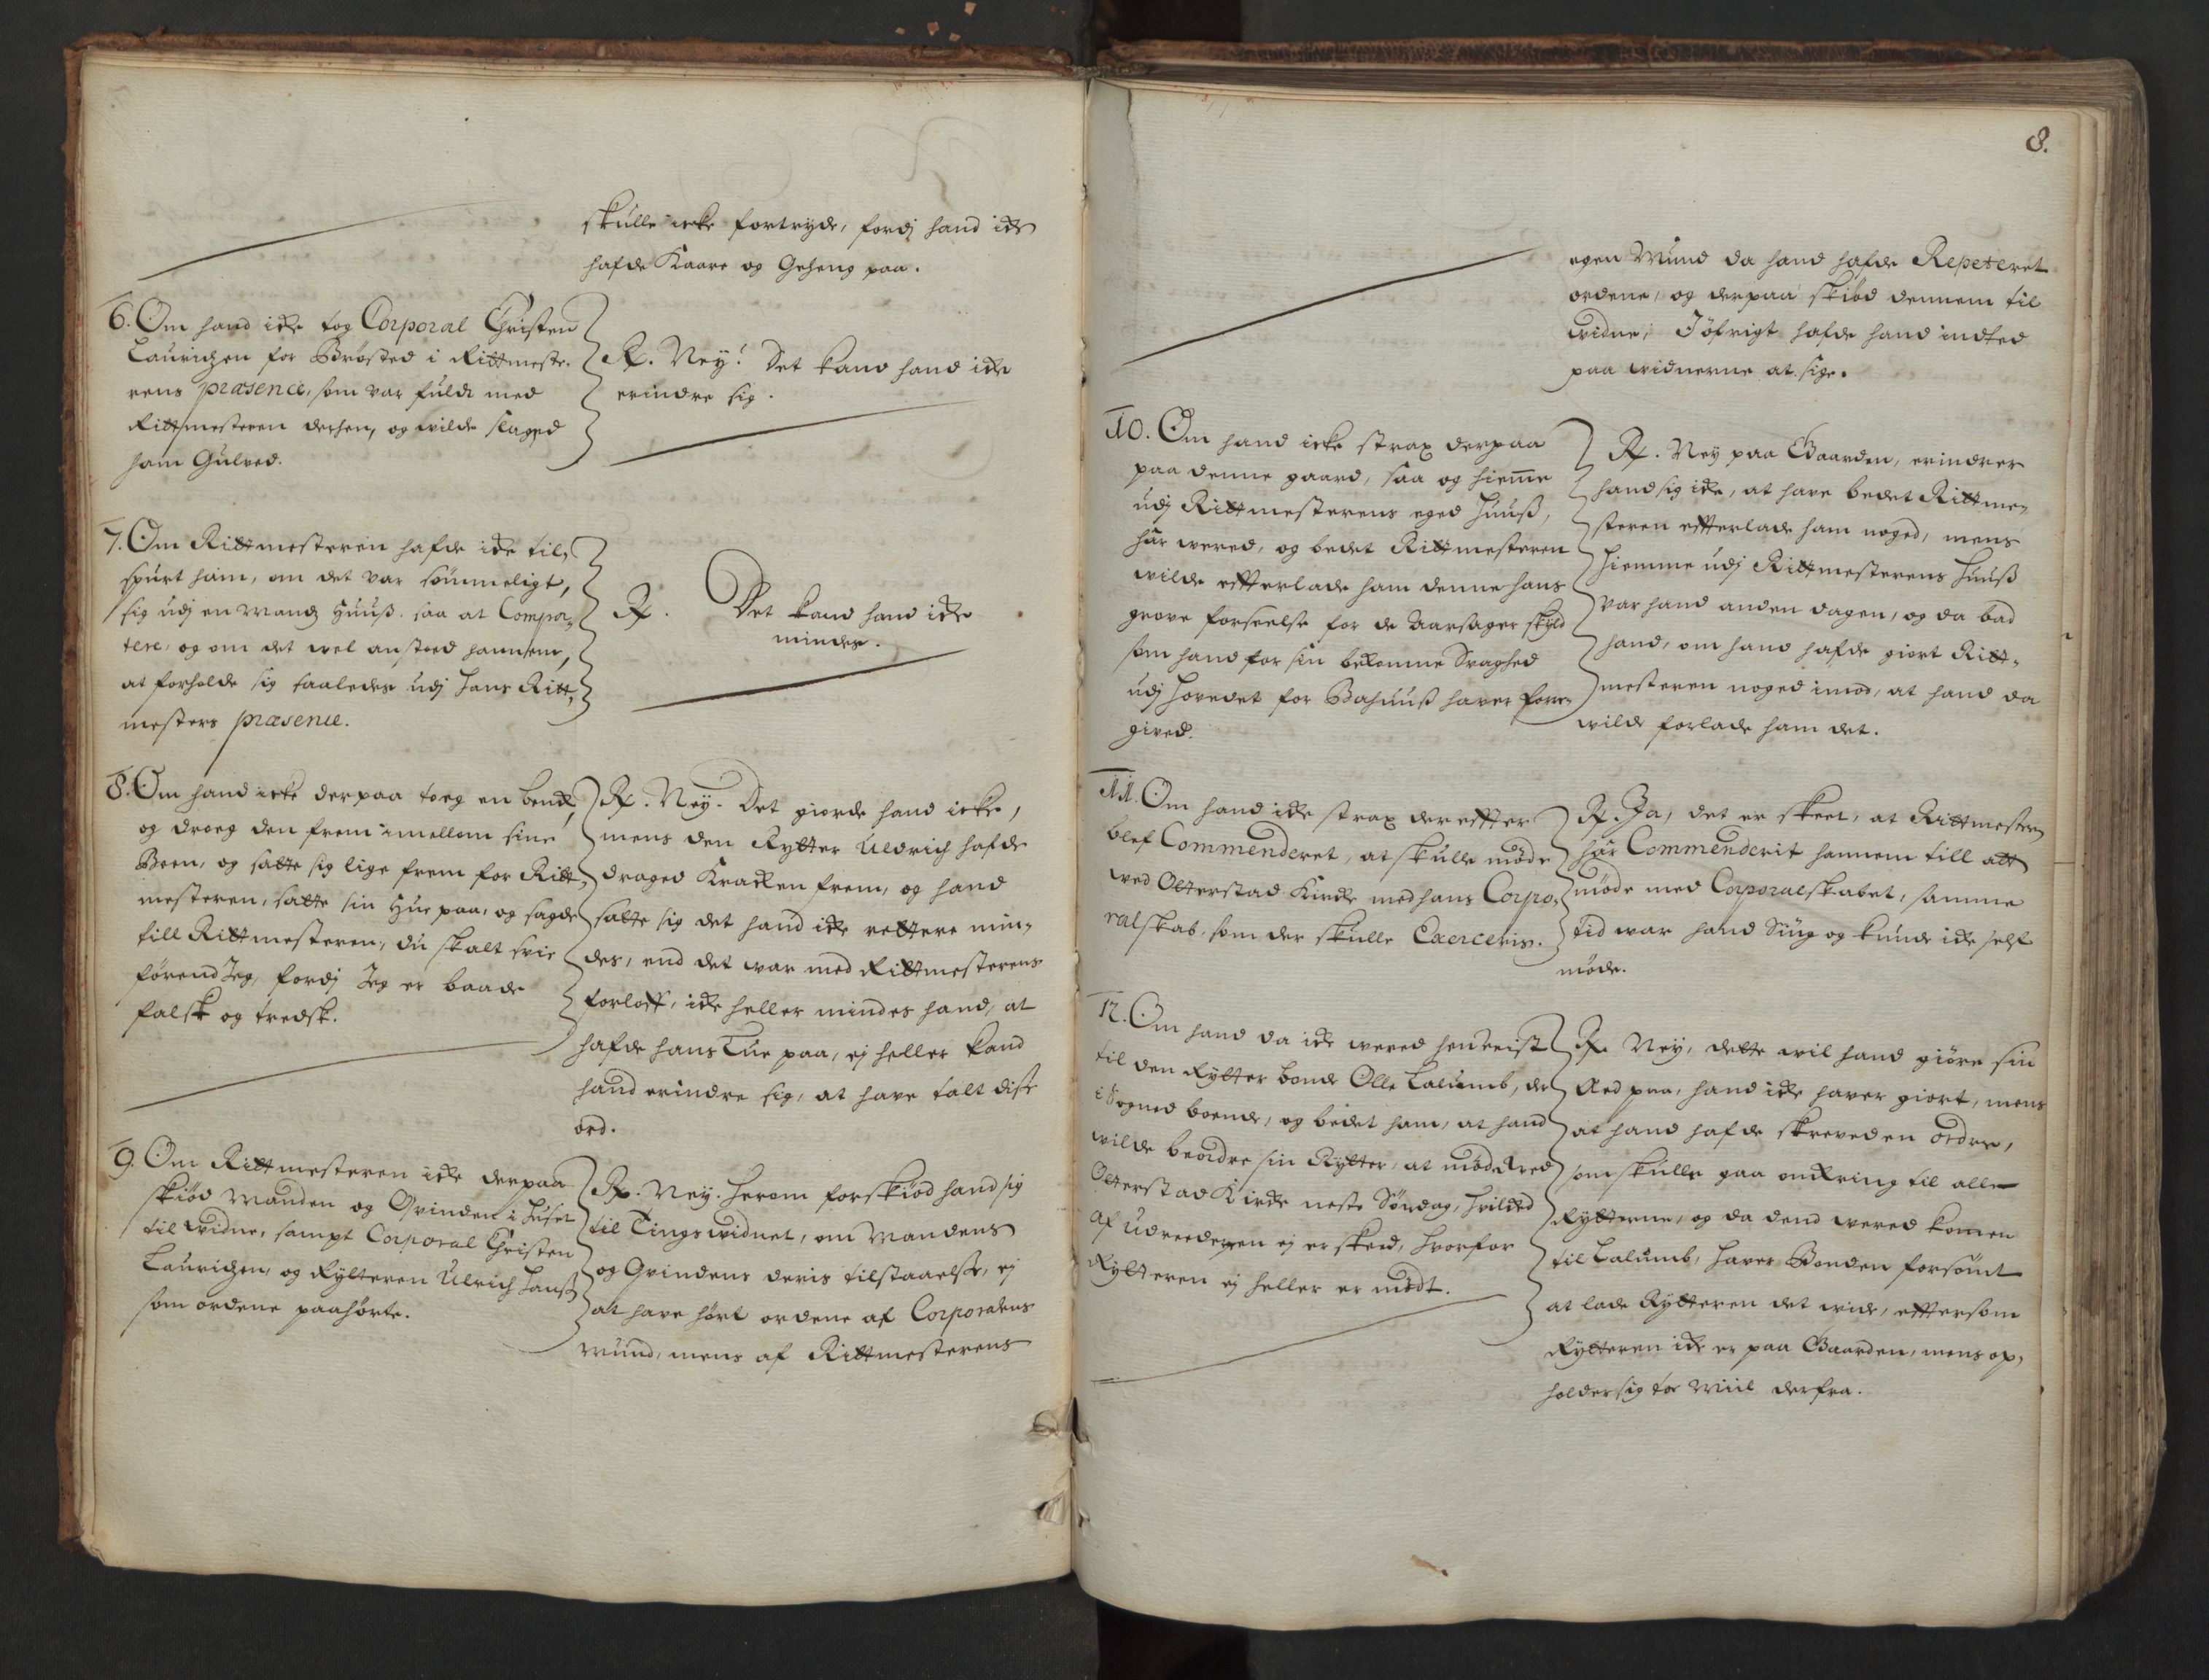 skulle icke fortryde, fordj hand icke
hafde Kaare og Geheng paa.
6. Om hand icke tog Corporal Christen
Lauridzen for Brøsted i Rittmeste-
rens præsence, som var fulde med
Rittmesteren derhen, og wilde slaged
ham Gulved.
R. Ney! Det kand hand icke
erindre sig.
7. Om Rittmesteren hafde icke til-
spurt ham, om det var sømmeligt,
sig udj en Mands Huuß saa at Compor-
tere, og om det wel anstoed hannem,
at forholde sig saaledes udj hans Ritt-
mesters præsence.
R. Det kand hand icke
mindes.
8. Om hand icke derpaa toeg en benck,
og droeg den frem imellom sine
Been, og satte sig lige frem for Ritt-
mesteren, satte sin Hue paa, og sagde
till Rittmesteren, du skalt svie
førend Jeg, fordj Jeg er baade
falsk og tredsk.
R. Ney. Det giorde hand icke,
mens den Rytter Uldrich hafde
draged Kracken frem, og hand
satte sig det hand icke rettere min-
des, end det war med Rittmesterens
forloff, icke heller mindes hand, at
hafde hans Hue paa, ej heller kand
hand erindre sig, at have talt disse
ord.
9. Om Rittmesteren icke derpaa
skiød Manden og Qvinden i Huset
til widne, sampt Corporal Christen
Lauridzen, og Rytteren Ulrich Hanß
som ordene paahørte.
R. Ney. Herom forskiød hand sig
til Tingswidnet, om Mandens
og Qvindens deris tilstaaelse, ej
at have hørt ordene af Corporalens
Mund, mens af Rittmesterens
8.
egen Mund da hand hafde Repeteret
ordene, og derpaa skiød dennem til
widne, Jøfrigt hafde hand indted
paa widnerne at sige.
10. Om hand icke strax derpaa
paa denne gaard, saa og hiemme
udj Rittmesterens eged Huuß,
har wered, og bedet Rittmesteren
wilde effterlade ham denne hans
grove forseelse for de Aarsager skyld
som hand for sin bekomne Svaghed
udj Hovedet for Bahuuß haver fore-
gived.
R. Ney paa Gaarden, erindrer
hand sig icke, at have bedet Rittme-
steren effterlade ham noged, mens
hiemme udj Rittmesterens Huuß
var hand anden dagen, og da bad
hand, om hand hafde giort Ritt-
mesteren noged imod, at hand da
wilde forlade ham det.
11. Om hand icke strax dereffter
blef Commenderet, at skulle møde
wed Olterstad Kircke med hans Corpo-
ralskab, som der skulle Exerceris.
R. Ja, det er skeet, at Rittmesteren
har Commenderit hannem till att
møde med Corporalskabet, samme
tid war hand Siug og kunde icke self
møde.
12. Om hand da icke wered henreist
til den Rytter bonde Olle Calumb, der
i Sogned boende, og bedet ham, at hand
wilde beordre sin Rytter, at møde wed
Olterstad Kircke neste Søndag, hvilcked
af Udreederen ej er skeed, hvorfor
Rytteren ej heller er mødt.
R. Ney, dette wil hand giøre sin
Aed paa, hand icke haver giort, mens
at hand hafde skreved en ordre,
som skulle gaa omkring til alle
Rytterne, og da dend wered komen
til Calumb, haver Bonden forsømt
at lade Rytteren det wide, effttersom
Rytteren icke er paa Gaarden, mens op-
holder sig toe Miil derfra.